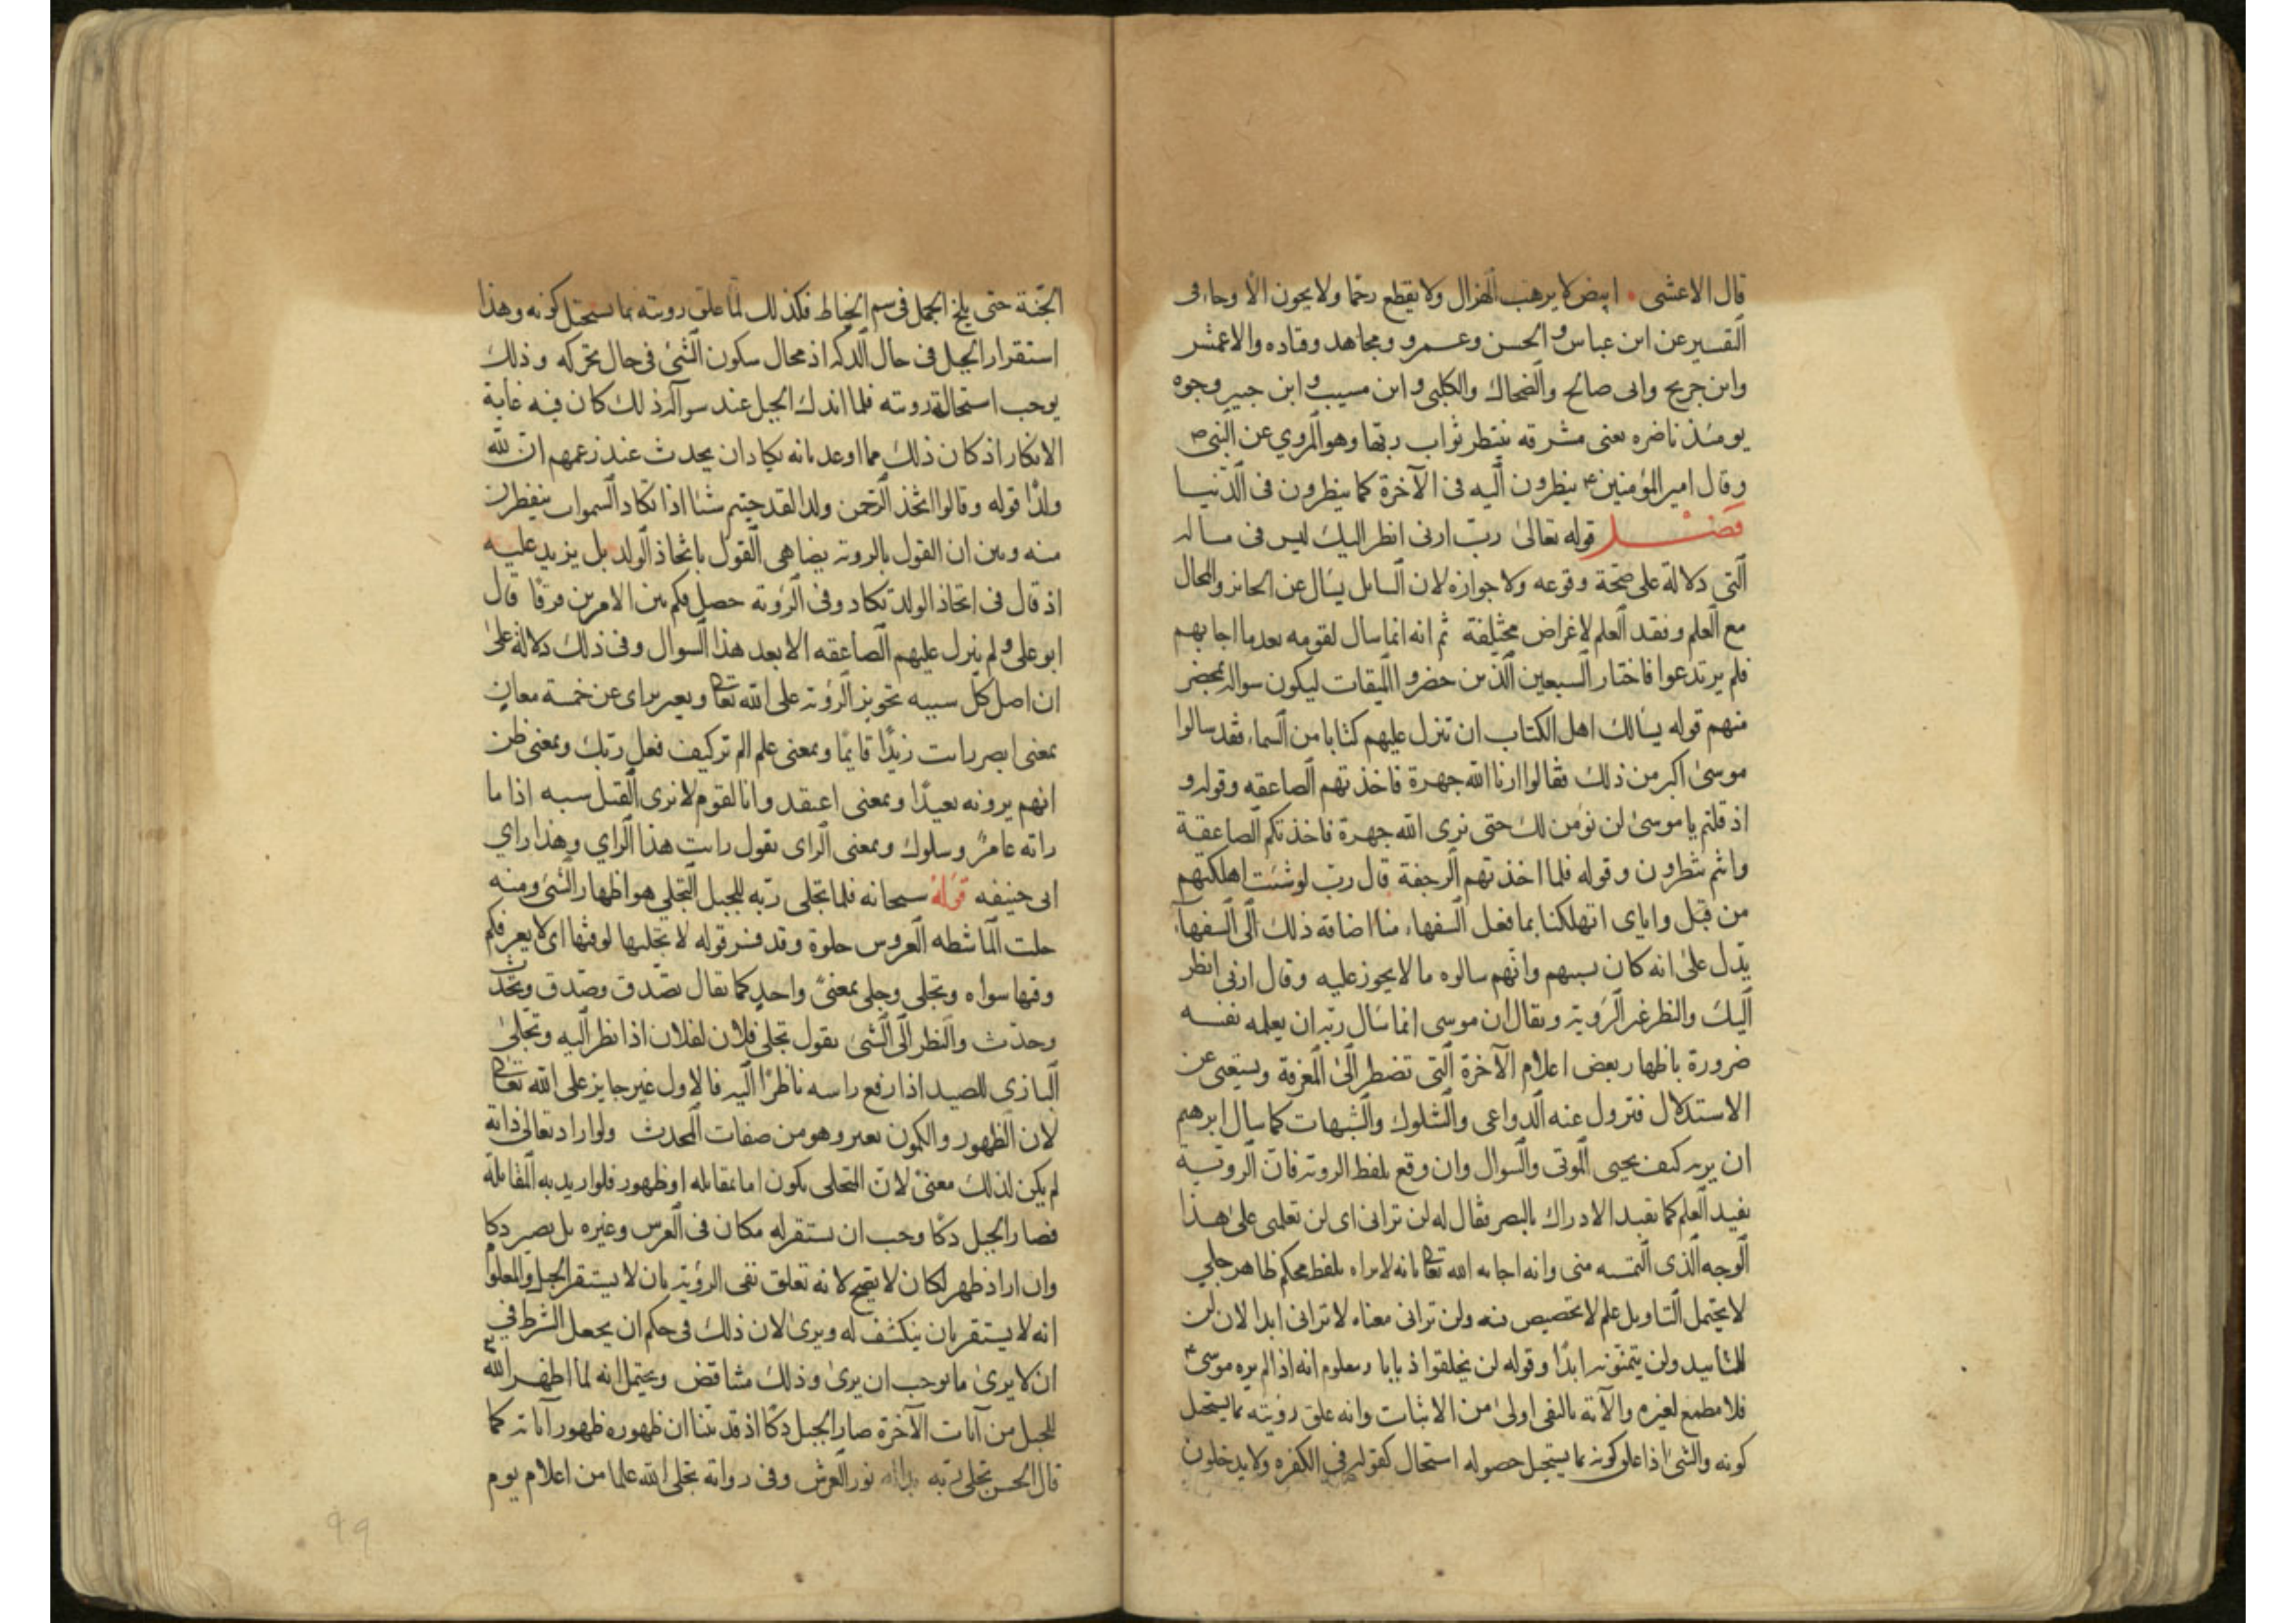 قال الاعشى ابيض لا يرهب الهزال ولا يقطع رحما ولا يخون الا وجاء في
التفسير عن ابن عباس والحسن وعمرو ومجاهد وقتاده والاعمش
وابن جريح وابى صالح والضحاك والكلبى وابن مسيب وابن جبير وجوه
يومئذ ناضره يعنى مشرقه ينتظر ثواب ربها وهو المروي عن النبى ص
وقال امير المؤمنين ع ينظرون اليه فى الآخرة كما ينظرون فى الدنيا
فصل قوله تعالى رب ارنى انظر اليك ليس فى مساله
التى دلالة على صحة وقوعه ولا جوازه لان السايل يسال عن الجايز والمحال
مع العلم وفقد العلم لاغراض مختلفة ثم انه انما سال لقومه بعد ما اجابهم
فلم يرتدعوا فاختار السبعين الذين حضروا الميقات ليكون سواله بمحضر
منهم قوله يسالك اهل الكتاب ان تنزل عليهم كتابا من السماء فقد سالوا
موسى اكبر من ذلك فقالوا ارنا الله جهرة فاخذتهم الصاعقه وقوله و
اذ قلتم يا موسى لن نؤمن لك حتى نرى الله جهرة فاخذتكم الصاعقة
وانتم تنظرون وقوله فلما اخذتهم الرجفة قال رب لو شئت اهلكتهم
من قبل واياى اتهلكنا بما فعل السفهاء منا اضافة ذلك الى السفهاء
يدل على انه كان بسببهم وانهم سالوه ما لا يجوز عليه وقال ارنى انظر
اليك والنظر غير الروية ويقال ان موسى انما سال ربه ان يعلمه نفسه
ضرورة باظهار بعض اعلام الآخرة التى تضطر الى المعرفة ويستغنى عن
الاستدلال فتزول عنه الدواعى والشكوك والشبهات كما سال ابرهيم
ان يريه كيف يحيى الموتى والسوال وان وقع بلفظ الروية فان الروية
تفيد العلم كما تفيد الادراك بالبصر فقال له لن ترانى اى لن تعلمى على هذا
الوجه الذى التمسه منى وانه اجابه الله تعالى بانه لا يراه بلفظ محكم ظاهر جلي
لا يحتمل التاويل علم لا تخصيص فيه ولن ترانى معناه لا ترانى ابدا لان لن
للتابيد ولن يتمنونه ابدا وقوله لن يخلقوا ذبابا ومعلوم انه اذا لم يره موسى ع
فلا مطمع لغيره والآية بالنفى اولى من الاثبات وانه علق رؤيته بما يستحيل
كونه والشئ اذا علق كونه بما يستحيل حصوله استحال كقوله فى الكفره ولا يدخلون
الجنة حتى يلج الجمل فى سم الخياط فكذلك لما علق رويته بما يستحيل كونه وهذا
استقرار الجبل فى حال الدكه اذ محال سكون الشئ فى حال تحركه وذلك
يوجب استحالة رويته فلما اندك الجبل عند سواله ذلك كان فيه غاية
الانكار اذ كان ذلك مما اوعد بانه يكاد ان يحدث عند زعمهم ان لله
ولدا قوله وقالوا اتخذ الرحمن ولدا لقد جيتم شيئا ادا تكاد السموات يتفطرن
منه وبين ان القول بالروية يضاهى القول باتخاذ الولد بل يزيد عليه
اذ قال فى اتخاذ الولد تكاد وفى الرؤية حصل فكم بين الامرين فرقا قال
ابو على ولم ينزل عليهم الصاعقه الا بعد هذا السوال وفى ذلك دلالة على
ان اصل كل سبيه تجويز الرؤية على الله تعالى ويعبر براى عن خمسة معان
بمعنى ابصر رايت زيدا قايما وبمعنى علم الم تر كيف فعل ربك وبمعنى ظن
انهم يرونه بعيدا وبمعنى اعتقد وانا لقوم لا نرى القتل سبه اذا ما
راته عامر وسلول وبمعنى الراى يقول رايت هذا الراي وهذا راي
ابى حنيفه قوله سبحانه فلما تجلى ربه للجبل التجلي هو اظهار الشئ ومنه
جلت الماشطه العروس جلوة وقد فسر قوله لا يجليها لوقتها اى لا يعرفكم
وقتها سواه وتجلى وجلى بمعنى واحد كما يقال تصدق وصدق وتحدث
وحدث والنظر الى الشئ يقول تجلى فلان لفلان اذا نظر اليه وتجلى
البازى للصيد اذا رفع راسه ناظرا اليه فالاول غير جايز على الله تعالى
لان الظهور والكمون تغير وهو من صفات المحدث ولو اراد تعالى ذاته
لم يكن لذلك معنى لان التجلى يكون اما بمقابله او ظهور فلو اريد به المقابلة
فصار الجبل دكا وجب ان يستقر له مكان فى العرش وغيره بل يصير دكا
وان اراد ظهر لكان لا يصح لانه تعلق نفى الرؤية بان لا يستقر الجبل والمعلوم
انه لا يستقر بان ينكشف له ويرى لان ذلك فى حكم ان يجعل الشرط في
ان لا يرى ما يوجب ان يرى وذلك متناقض ويحتمل انه لما اظهر الله
للجبل من آيات الآخرة صار الجبل دكا اذ قد بينا ان ظهوره ظهور آياته كما
قال الحسن تجلى ربه نور العرش وفى روايه تجلى الله علما من اعلام يوم
99